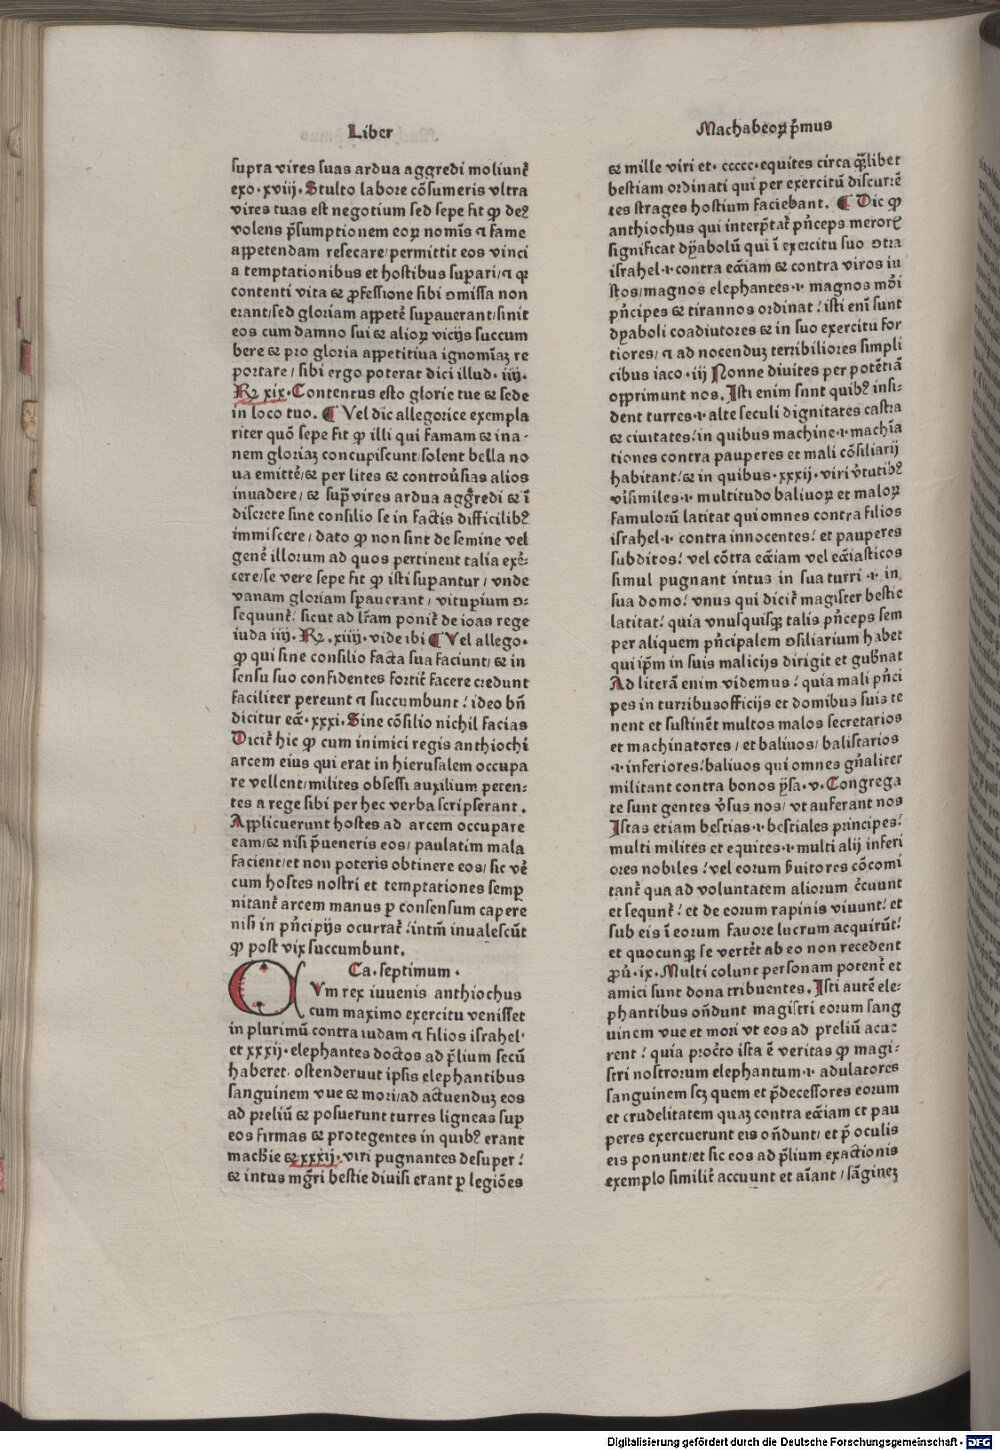 Liber
supra vires suas ardua aggredi moliunt᷑
exo·xviij·Stulto labore cõsumeris vltra
vires tuas est negotium sed sepe fit ꝙ deꝰ
volens p̃sumptionem eoꝝ nomĩs ⁊ fame
appetendam resecare/permittit eos vinci
a temptationibus et hostibus supari/⁊ qꝛ
contenti vita ⁊ ꝓfessione sibi ꝯmissa non
erant/sed gloriam appetẽ supauerant/sinit
eos cum damno sui ⁊ alioꝝ vicijs succum
bere ⁊ pro gloria appetitiua ignomĩaꝫ re
portare/sibi ergo poterat dici illud·iiij·
Rꝝ xix·Contentus esto glorie tue ⁊ sede
in loco tuo. ¶ Vel dic allegorice exempla
riter quõ sepe fit ꝙ illi qui famam ⁊ ina-
nem gloriaꝫ concupiscunt/solent bella no
ua emittẽ/⁊ per lites ⁊ controũsias alios
inuadere/⁊ sup̃ vires ardua agg̃redi ⁊ ĩ
discrete sine consilio se in factis difficilibꝰ
immiscere/dato ꝙ non sint de semine vel
geñe illorum ad quos pertinent talia exẽ-
cere/se vere sepe fit ꝙ isti supantur/vnde
vanam gloriam spauerant/vitupium ꝯ-
sequunt᷑/sicut ad lr̃am ponit᷑ de ioas rege
iuda iiij·Rꝝ·xiiij·vide ibi ¶ Vel allego·
ꝙ qui sine consilio facta sua faciunt/⁊ in
sensu suo confidentes fortiẽ facere credunt
faciliter pereunt ⁊ succumbunt/ideo bñ
dicitur ecc̃·xxxi·Sine cõsilio nichil facias
Dicit᷑ hic ꝙ cum inimici regis anthiochi
arcem eius qui erat in hierusalem occupa
re vellent/milites obsessi auxilium peten-
tes a rege sibi per hec verba scripserant.
Applicuerunt hostes ad arcem occupare
eam/⁊ nisi p̃ueneris eos/paulatim mala
facient/et non poteris obtinere eos/sic vẽ
cum hostes nostri et temptationes semꝑ
nitant᷑ arcem manus ꝑ consensum capere
nisi in pñcipijs ocurrat᷑/intm̃ inualescũt
ꝙ post vix succumbunt.
Ca·septimum·
CVm rex iuuenis anthiochus
cum maximo exercitu venisset
in plurimũ contra iudam ⁊ filios israhel·
et xxxij·elephantes doctos ad p̃lium secũ
haberet·ostenderuut ipsis elephantibus
sanguinem vue ⁊ mori/ad actuenduꝫ eos
ad preliũ ⁊ posuerunt turres ligneas sup
eos firmas ⁊ protegentes in quibꝰ erant
machie ⁊ xxxij·viri pugnantes desuper/
⁊ intus mg̃ri bestie diuisi erant ꝑ legiões
Machabeoꝝ p̃mus
⁊ mille viri et·ccccc·equites circa q̃libet
bestiam ordinati qui per exercitũ discurrẽ
tes strages hostium faciebant. ¶ Dic ꝙ
anthiochus qui interp̃tat᷑ pñceps meroꝝ
significat dyabolũ qui ĩ exercitu suo ꝯtra
israhel·i·contra ecc̃iam ⁊ contra viros iu
stos/magnos elephantes·i·magnos mõi
pñcipes ⁊ tirannos ordinat/isti eni sunt
dyaboli coadiutores ⁊ in suo exercitu for
tiores/⁊ ad nocenduꝫ terribiliores simpli
cibus iaco·iij Nonne diuites per potẽtiã
opprimunt nos.Isti enim snnt quibꝰ insi-
dent turres·i·alte seculi dignitates castra
⁊ ciuitates/in quibus machine·i·machia
tiones contra pauperes et mali cõsiliarij
habitant/⁊ in quibus·xxxij·viri v̾tutibꝰ
v̾isimiles·i·multitudo baliuoꝝ et maloꝝ
famulorũ latitat qui omnes contra filios
israhel·i·contra innocentes/et pauperes
subditos/vel cõtra ecc̃iam vel ecc̃iasticos
simul pugnant intus in sua turri·i·in
sua domo/vnus qui dicit᷑ magister bestie
latitat/quia vnusquisqꝫ talis pñceps sem
per aliquem pñcipalem ꝯsiliarium habet
qui ip̃m in suis malicijs dirigit et gub̃nat
Ad literã enim videmus/quia mali pñci
pes in turribusofficijs et domibus suis te
nent et sustinẽt multos malos secretarios
et machinatores/et baliuos/balistarios
·i·inferiores/baliuos qui omnes gñaliter
militant contra bonos p̃sa·v·Congrega
te sunt gentes v̾sus nos/vt auferant nos
Istas etiam bestias·i·bestiales principes/
multi milites et equites·i·multi alij inferi
ores nobiles/vel eorum s̾uitores cõcomi
tant᷑ qua ad voluntatem aliorum c̃cuunt
et sequnt᷑/et de eorum rapinis viuunt/et
sub eis ĩ eorum fauore lucrum acquirũt/
et quocunqꝫ se vertẽt ab eo non recedent
ꝓũ·ix·Multi colunt personam potent᷑ et
amici sunt dona tribuentes.Isti autẽ ele-
phantibus oñdunt magistri eorum sang
uinem vue et mori vt eos ad preliũ acue
rent/quia ꝓc̃to ista ẽ veritas ꝙ magi-
stri nostrorum elephantum·i·adulatores
sanguinem scꝫ quem et p̃decessores eorum
et crudelitatem quaꝫ contra ecc̃iam et pau
peres exercuerunt eis oñdunt/et p̃ oculis
eis ponunt/et sic eos ad p̃lium exactionis
exemplo similit᷑ accuunt et aĩant/sãgineꝫ
Digitalisierung gefördert durch die Deutsche Forschungsgemeinschaft · DFG